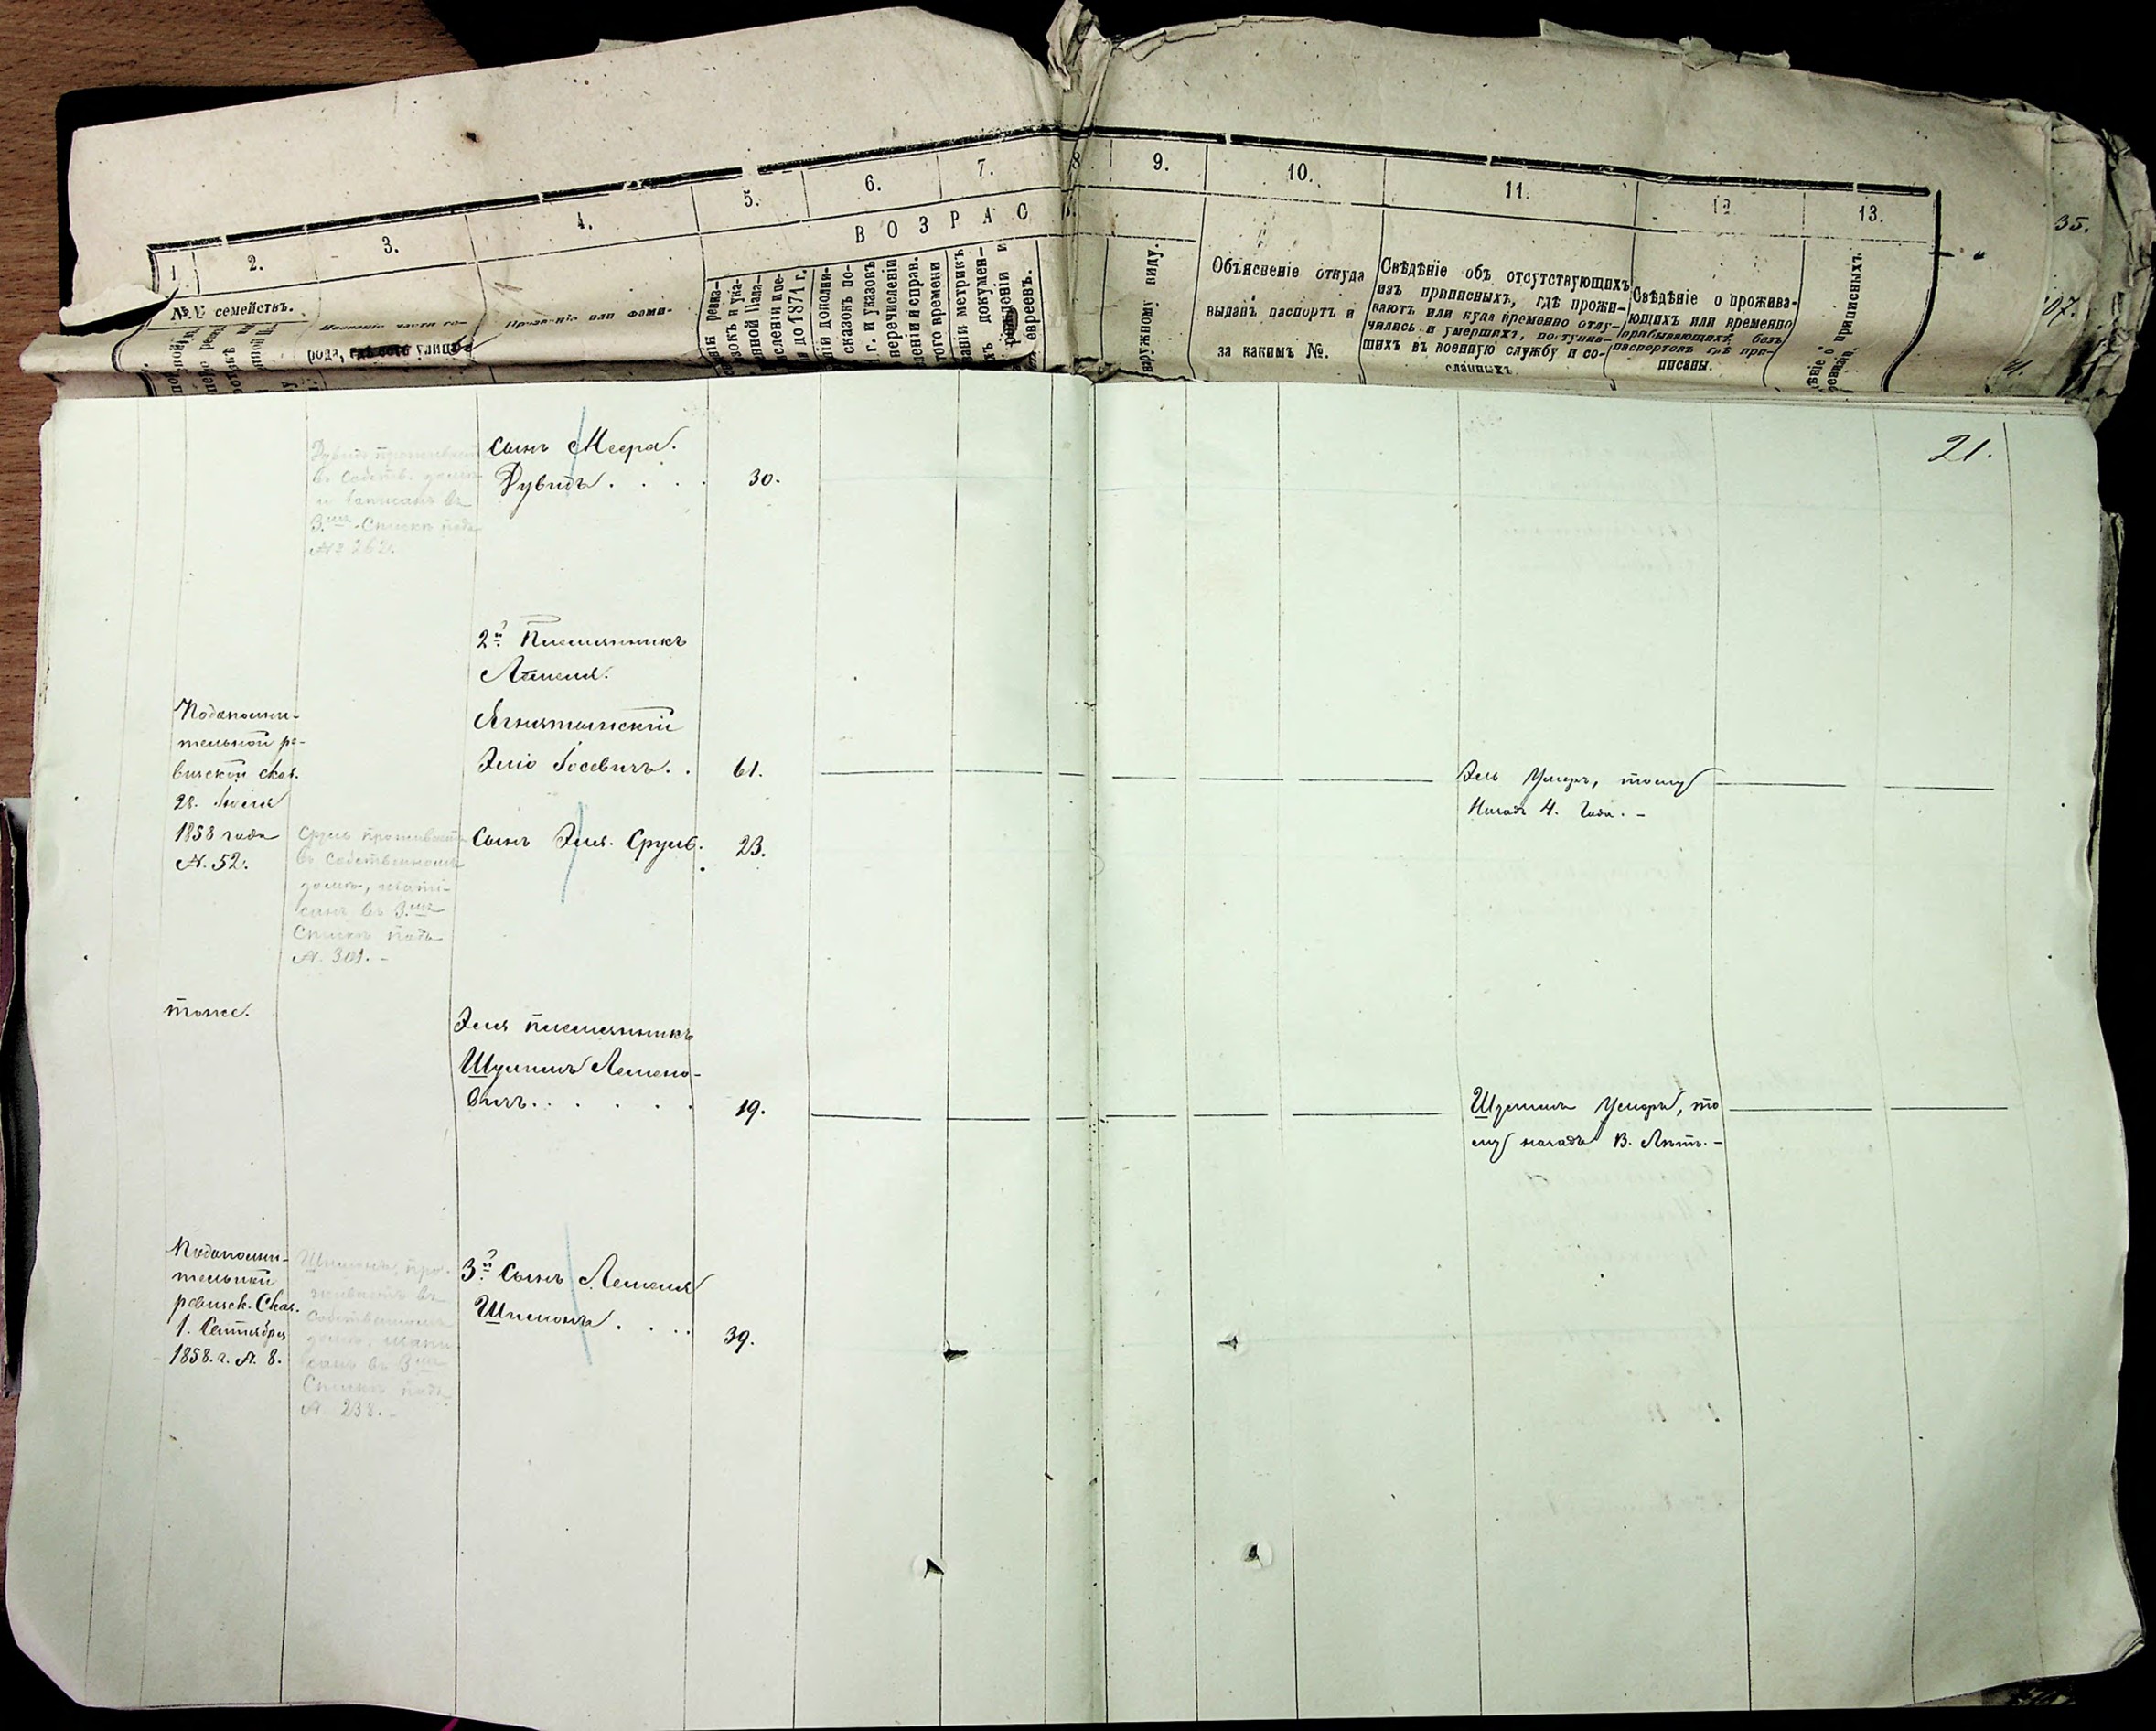 1
2.
3.
4.
5.
6.
7.
8
9.
10.
11.
12
13.
35.
В О З Р А С
№№ семействъ.
Названіе части го-
рода,
улица
Прозваніе или фами-
евреевъ.
наружному виду.
Объясненіе откуда
выданъ паспортъ и
за какимъ №.
Свѣдѣніе объ отсутствующихъ
изъ приписныхъ, гдѣ прожи-
ваютъ или куда временно отлу-
чились и умершихъ, поступив-
шихъ въ военную службу и со-
сланныхъ.
Свѣдѣніе о прожива-
ющихъ или временно
прибывающихъ, безъ
паспортовъ гдѣ при-
писаны.
приписныхъ.
07.
21.
Дувидъ проживаетъ
въ собств. домѣ
и записанъ въ
3.мъ Спискѣ подъ
№ 262.
Сынъ Меера.
Дувидъ . . . .
30.
2й Племянникъ
Лемеля.
Подополни-
тельной ре-
визской сказ.
28. Іюля
1858 года
№. 52.
Ягнятинскій
Эліо Іосевичъ . .
61.
Эль Умеръ, тому
Назадъ 4. Года. -
Сруль проживаетъ
въ собственномъ
домѣ, запи-
санъ въ 3.мъ
Спискѣ подъ
№. 301. -
Сынъ Эля. Сруль.
23.
тоже.
Эля племянникъ
Шулимъ Лемелі-
вичъ . . . . . .
19.
Шулимъ Умеръ, то
му назадъ 13. Лѣтъ. -
Подополни-
тельной
ревизск. Сказ.
1. Сентября
1858. г. №. 8.
Шимонъ, про-
живаетъ въ
собственномъ
домѣ, запи
санъ въ 3мъ
Спискѣ подъ
№. 238. -
3й Сынъ Лемеля
Шимонъ . . . .
39.